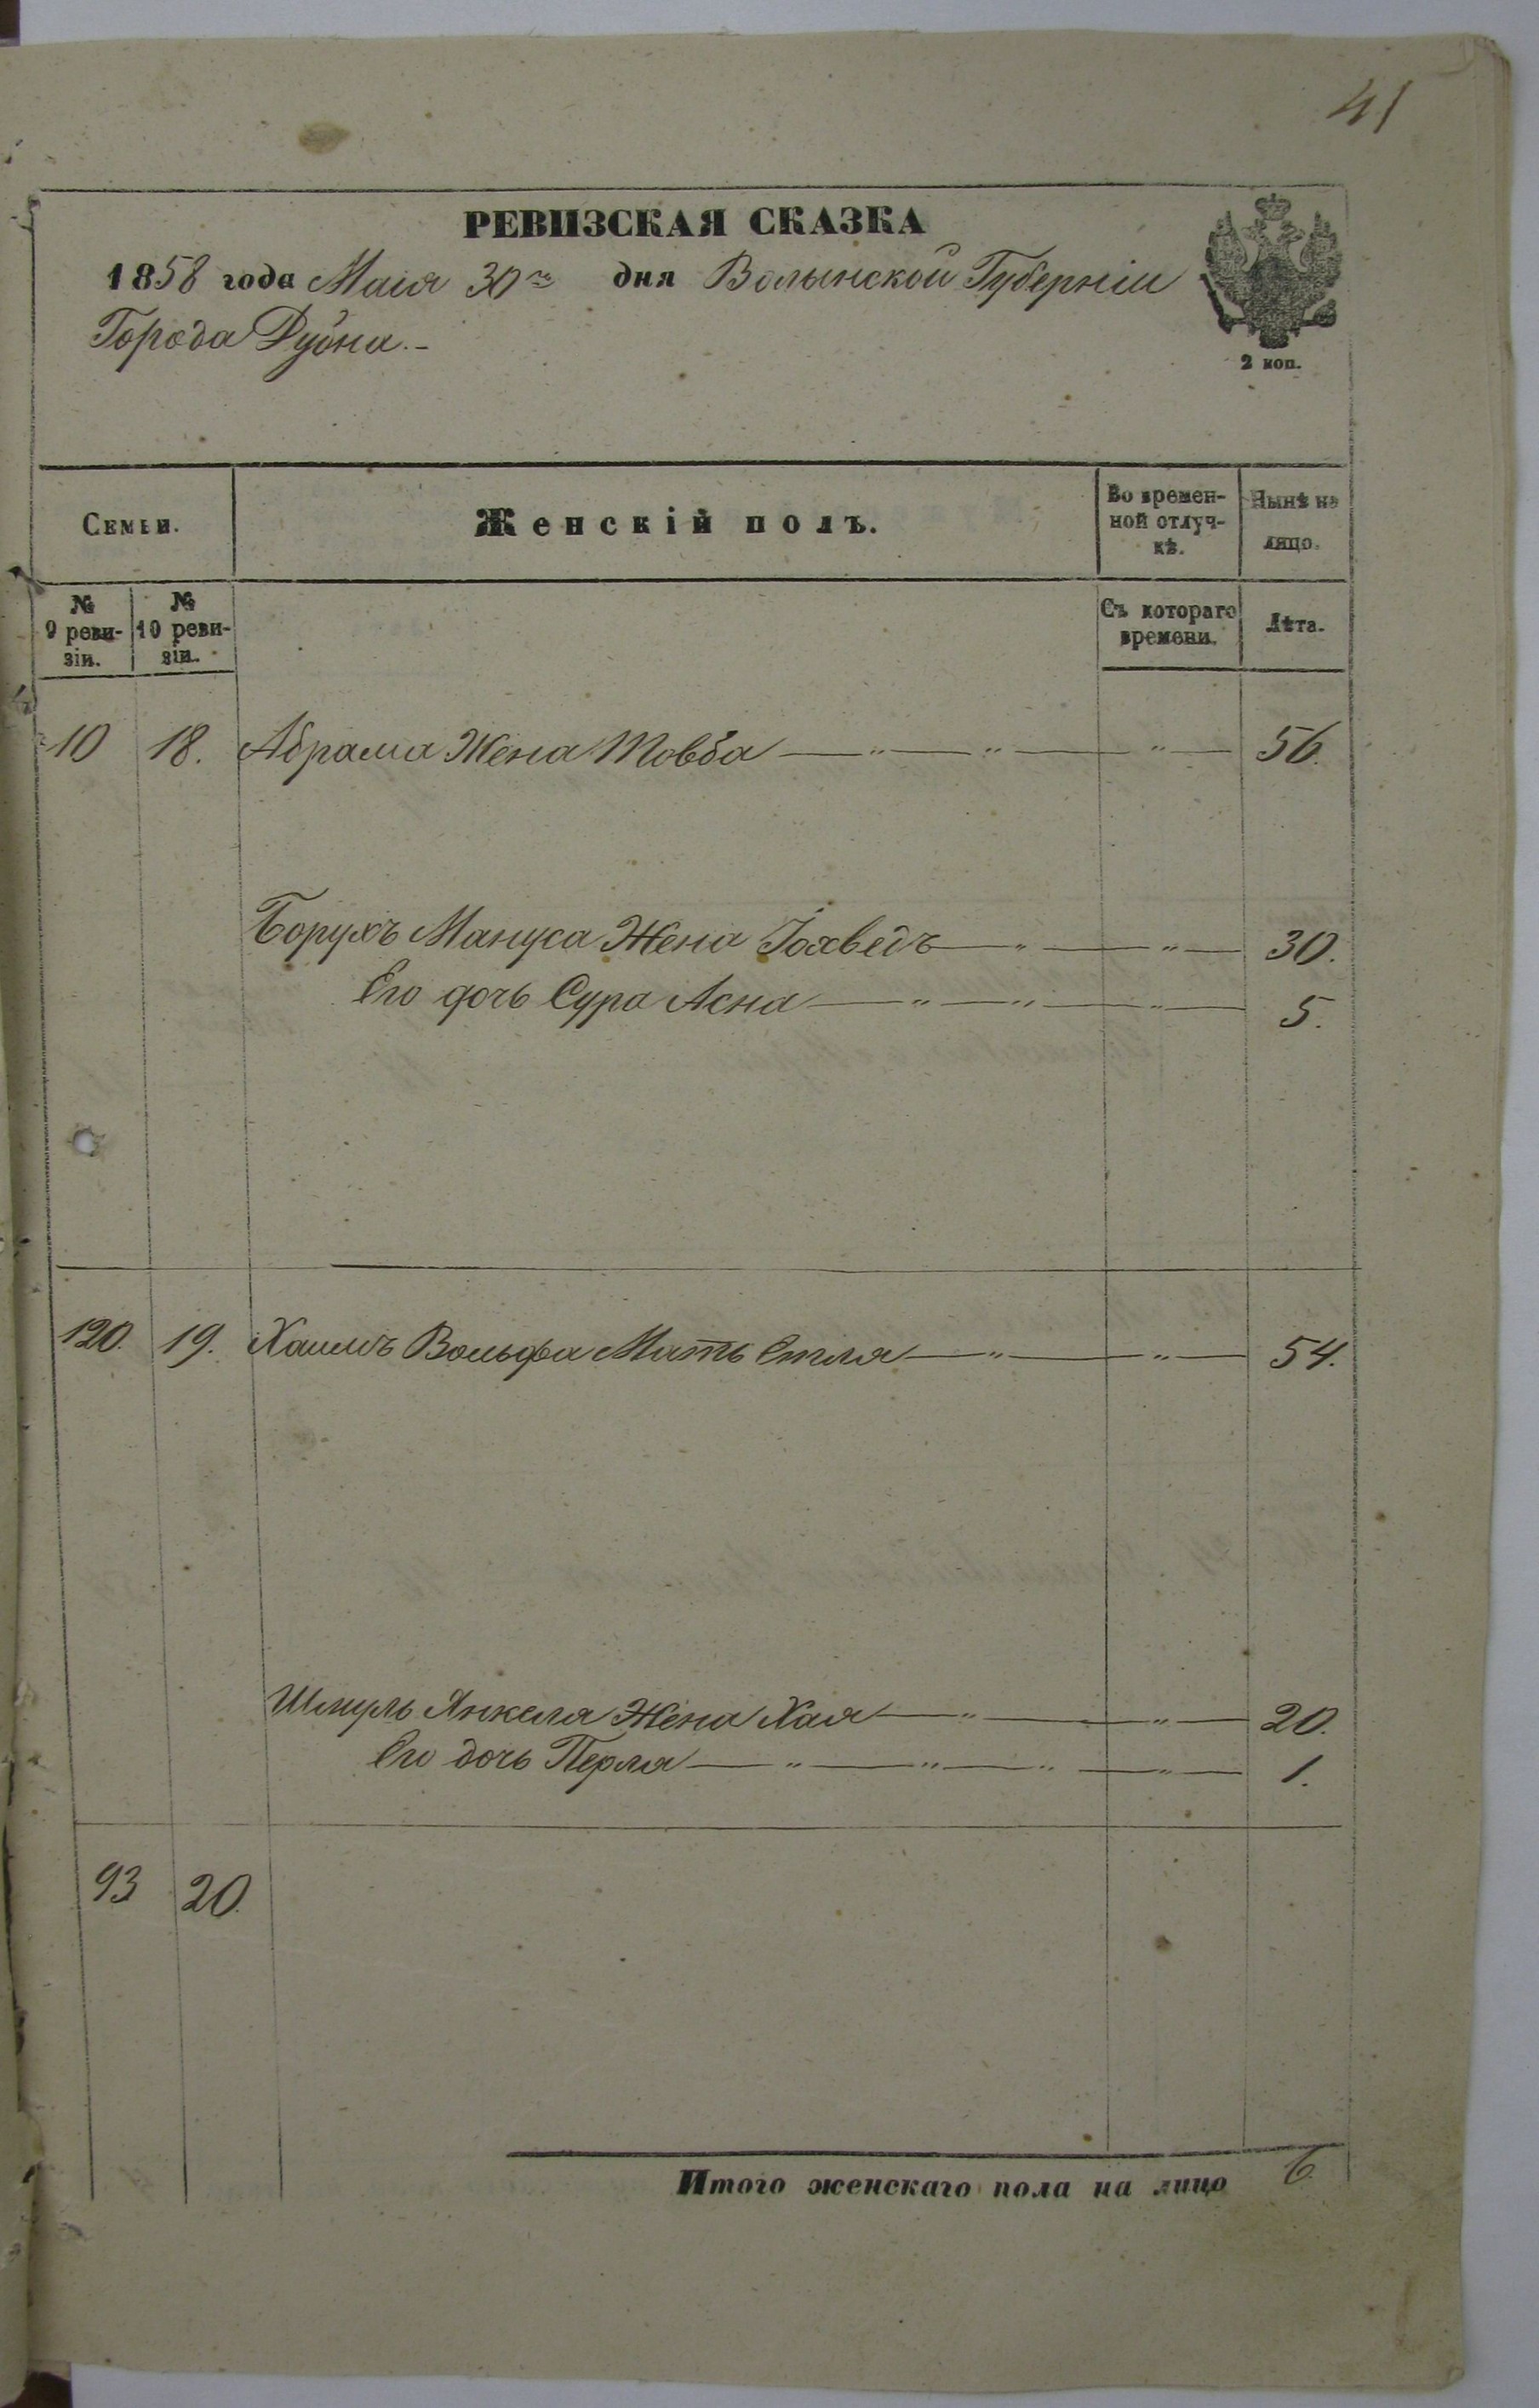 41
РЕВИЗСКАЯ СКАЗКА
1858 года Маія 30го дня Волынской Губерніи
Города Дубна.-
2 коп.
Семьи.
Женскій полъ.
Во времен-
ной отлуч-
кѣ.
Нынѣ на
лицо.
№
9 реви-
зіи.
№
10 реви-
зіи.
Съ котораго
времени.
Лѣта.
10 18. Абрама Жена Товба — „ — „ — „ — 56.
Борухъ Мануса Жена Іохведъ — „ — „ — 30.
Его дочь Сура Асна — „ — „ — „ — 5.
120. 19. Хаимъ Вольфа Мать Етля — „ — „ — 54.
Шмуль Янкеля Жена Хая — „ — „ — 20.
Его дочь Перля — „ — „ — „ — „ — 1.
93 20.
Итого женскаго пола на лицо 6.